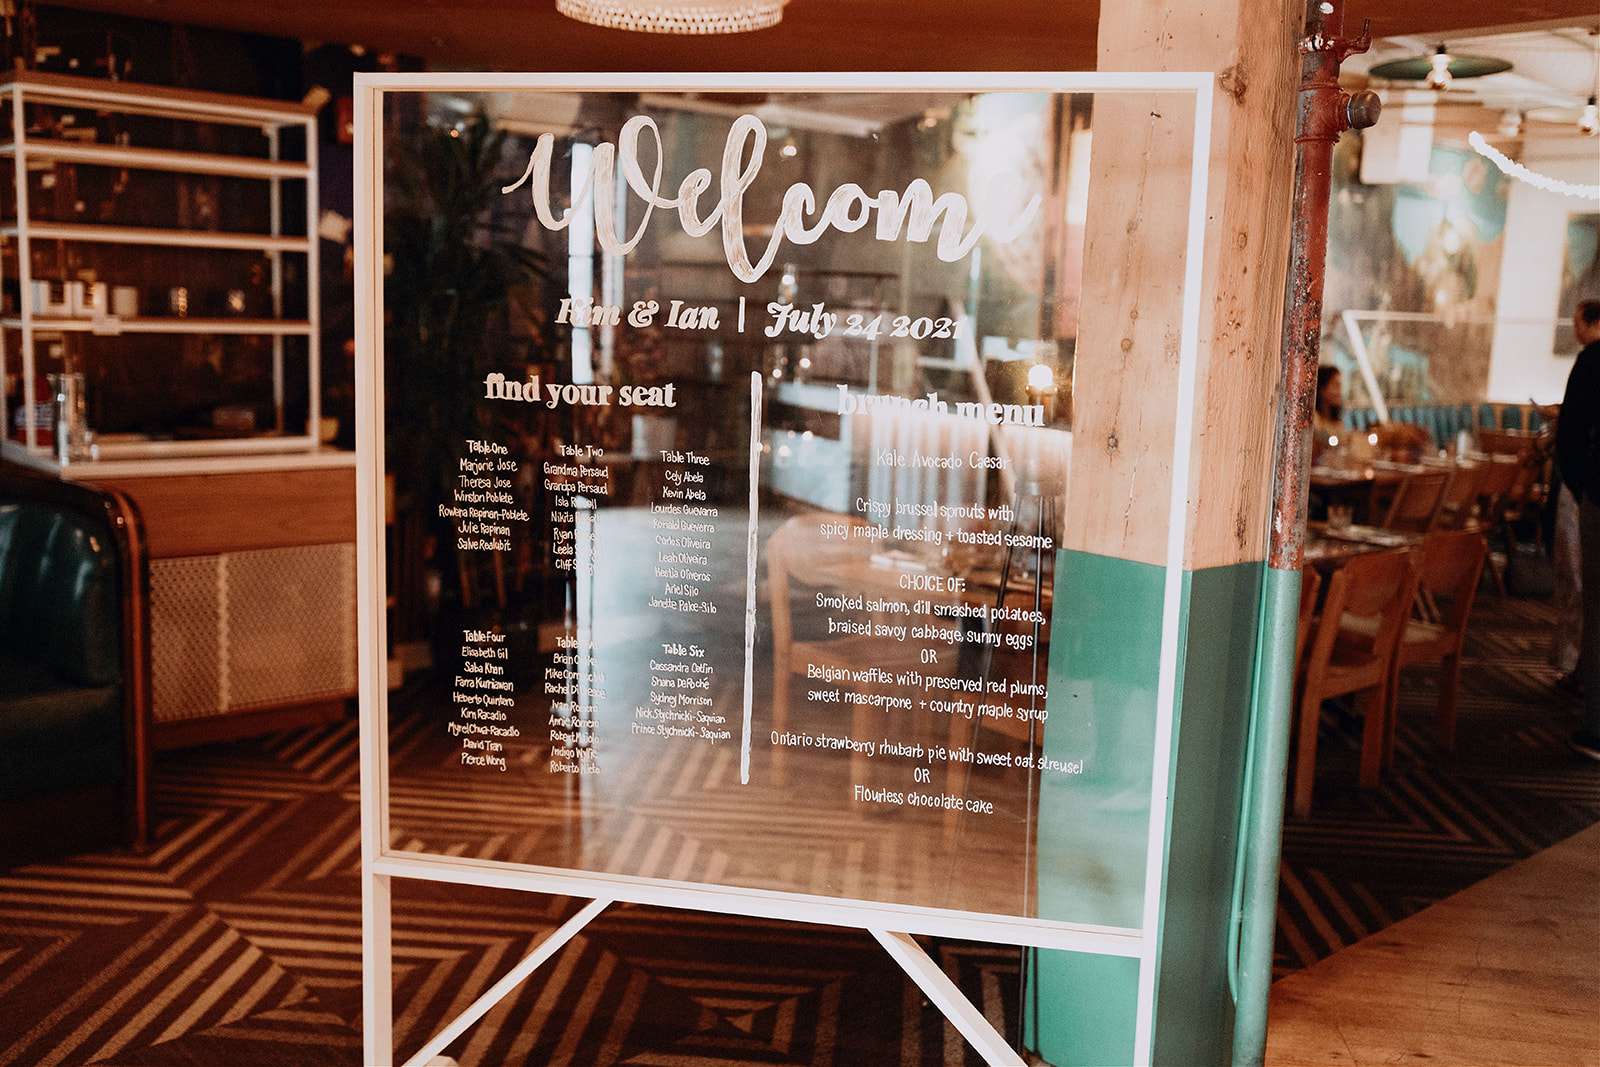 Welcome
Kim & Ian | July 24 2021
find your seat
Table One
Marjorie Jose
Theresa Jose
Winston Poblete
Rowena Rapinan-Poblete
Julie Rapinan
Salve Realubit
Table Two
Grandma Persaud
Grandpa Persaud
Isla
Nikita
Ryan
Leela
Cliff
Table Three
Cely Abela
Kevin Abela
Lourdes Guevarra
Ronald Guevarra
Carlos Oliveira
Leah Oliveira
Hestia Oliveros
Ariel Silo
Janette Pake-Silo
Table Four
Elisabeth Gil
Saba Khan
Farra Kurniawan
Heberto Quintero
Kim Racadio
Myrel Chua-Racadio
David Tian
Pierce Wong
Table
Brian
Mike
Rachel
Ivan Romero
Annie Romero
Robert
Indigo Wyllie
Roberto Nieto
Table Six
Cassandra
Shana DeRoché
Sydney Morrison
Nick Stychnicki-Saquian
Prince Stychnicki-Saquian
brunch menu
Kale Avocado Caesar
Crispy brussel sprouts with
spicy maple dressing + toasted sesame
CHOICE OF:
Smoked salmon, dill smashed potatoes,
braised savoy cabbage, sunny eggs
OR
Belgian waffles with preserved red plums,
sweet mascarpone + country maple syrup
Ontario strawberry rhubarb pie with sweet oat streusel
OR
Flourless chocolate cake